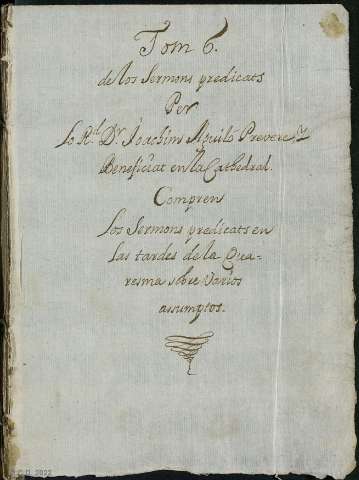 Tom 6.
de los Sermons predicats
Per
Lo R.d D.r Joachim Aguiló Prevere, y
Beneficiat en la Cathedral.
Compren
Los Sermons predicats en
las tardes de la Qua-
resma sobre varios
assumptos.